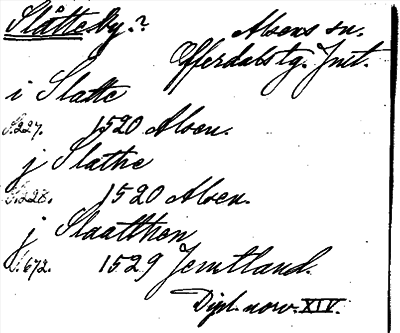 Slåtteby.? Alsens sn.
Offerdals tg. Jmt.
i Slatte
S. 227. 1520 Alsen.
j Slathe
S. 228. 1520 Alsen.
j Slaatthen
S. 672. 1529 Jemtland.
Dipl. norv. XIV.